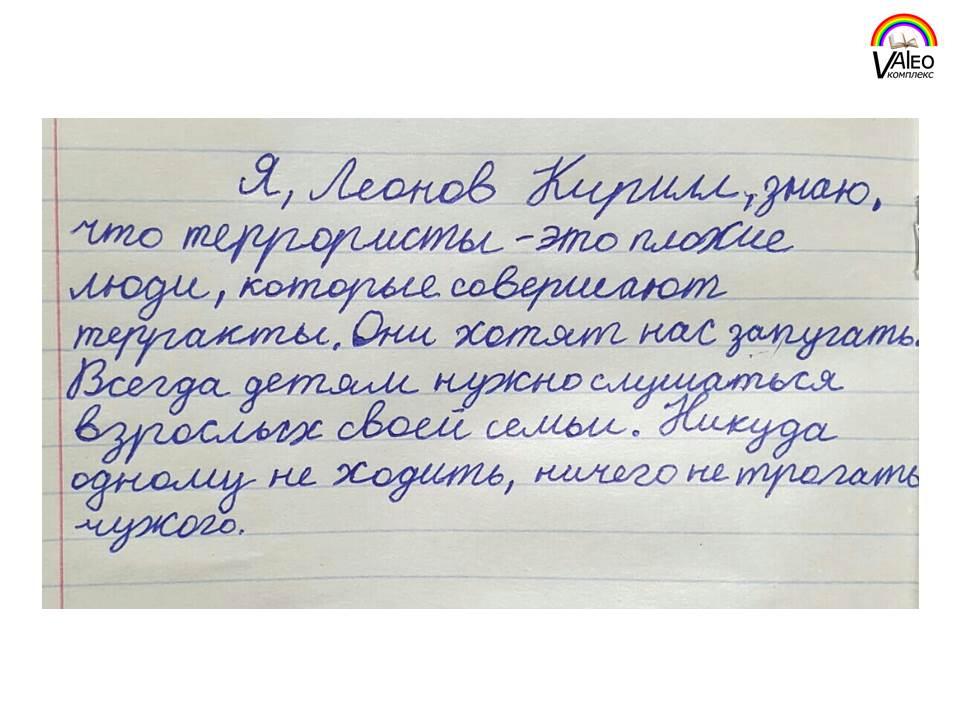 VAlEO
комплекс
Я, Леонов Кирилл, знаю,
что террористы - это плохие
люди, которые совершают
терракты. Они хотят нас запугать.
Всегда детям нужно слушаться
взрослых своей семьи. Никуда
одному не ходить, ничего не трогать
чужого.